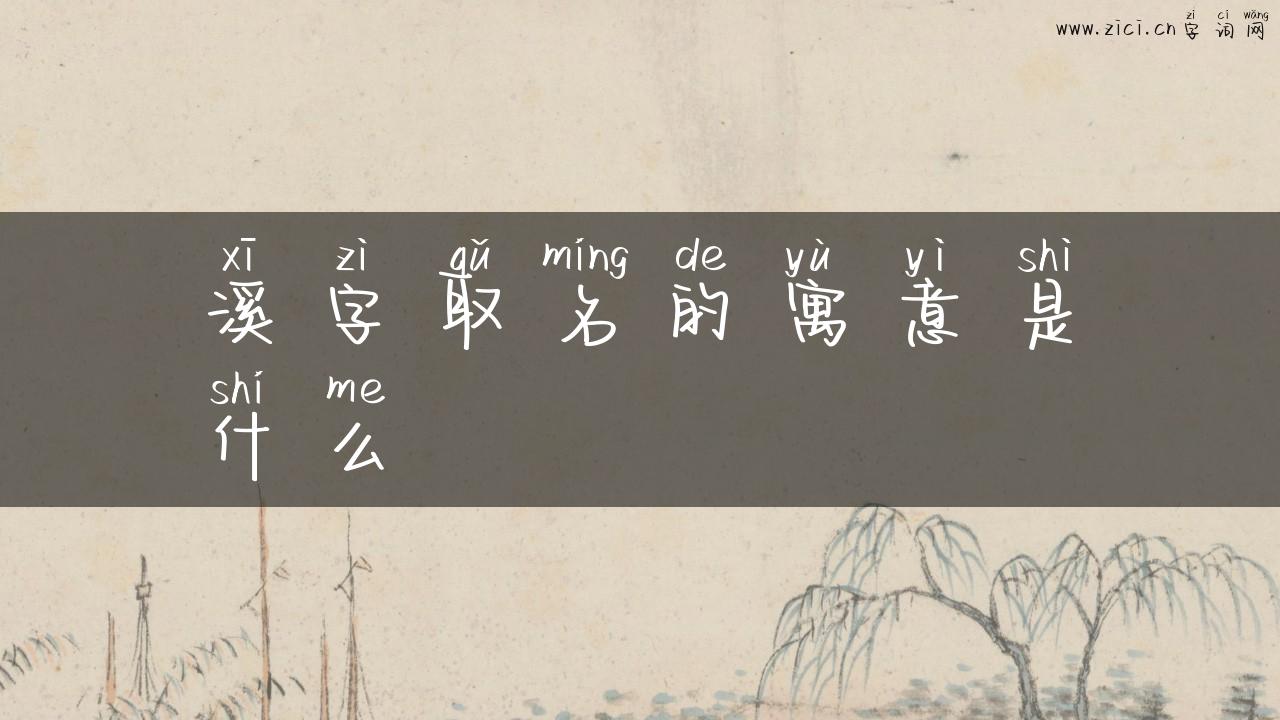 zì cí wǎng
www.zici.cn 字词网
xī zì qǔ míng de yù yì shì
溪字取名的寓意是
shí me
什么